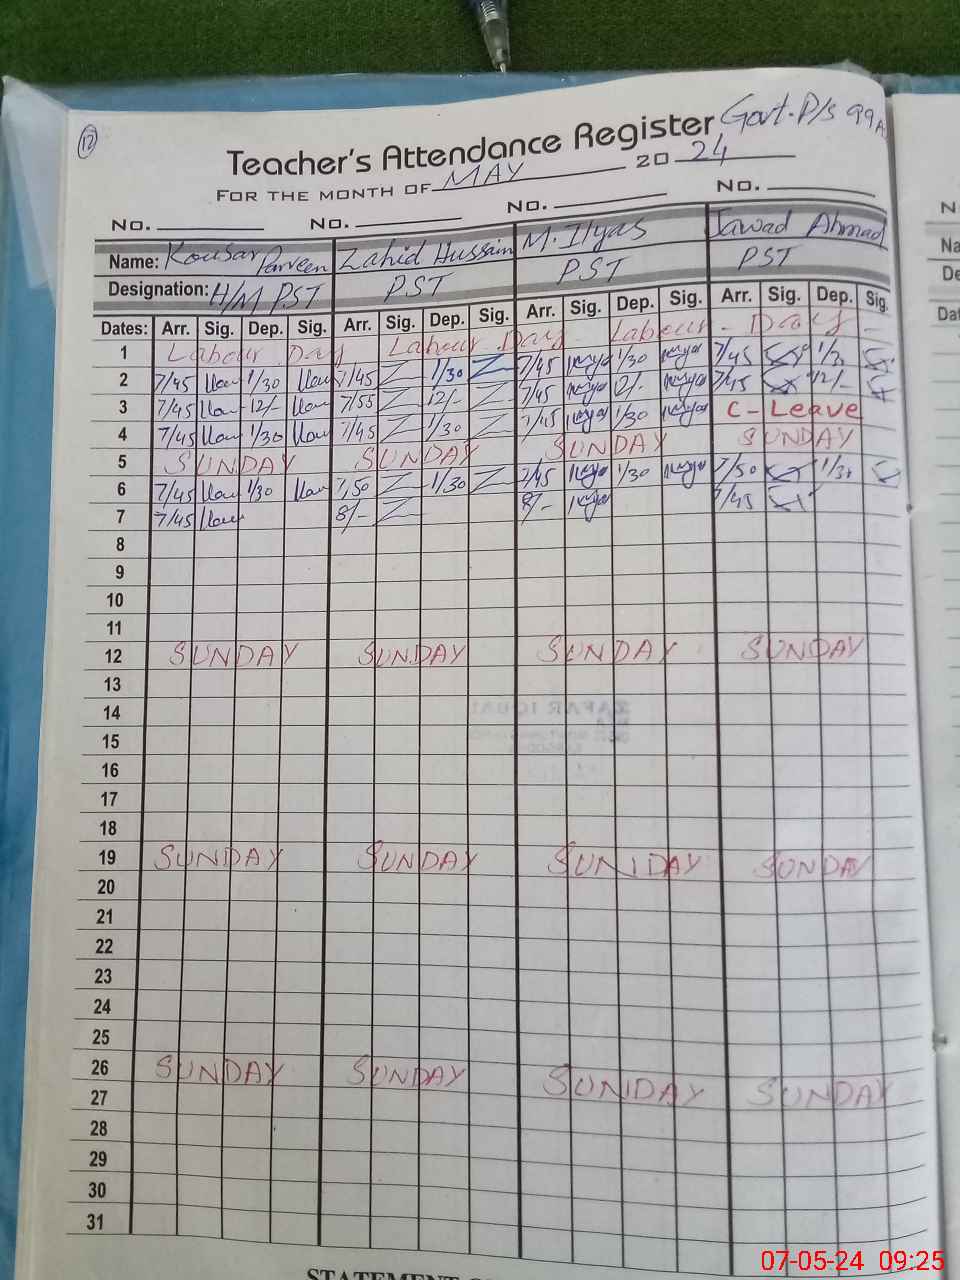 12
Govt. P/s 99A
Teacher's Attendance Register
FOR THE MONTH OF MAY 20 24
No. No. No. No.
Name: Kousar Parveen Zahid Hussain M. Ilyas Jawad Ahmad
Designation: H/M PST PST PST PST
Dates: Arr. Sig. Dep. Sig. Arr. Sig. Dep. Sig. Arr. Sig. Dep. Sig. Arr. Sig. Dep. Sig.
1 Labour Day Labour Day Labour Day
2 7/45 1/30 7/45 1/30 7/45 1/30 7/45 1/30
3 7/45 12/- 7/55 12/- 7/45 12/- 7/45 12/-
4 7/45 1/30 7/45 1/30 7/45 1/30 C-Leave
5 SUNDAY SUNDAY SUNDAY SUNDAY
6 7/45 1/30 7,50 1/30 7/45 1/30 7/50 1/30
7 7/45 8/- 8/- 7/45
8
9
10
11
12 SUNDAY SUNDAY SUNDAY SUNDAY
13
14
15
16
17
18
19 SUNDAY SUNDAY SUNDAY SUNDAY
20
21
22
23
24
25
26 SUNDAY SUNDAY SUNDAY SUNDAY
27
28
29
30
31
STATEMENT
07-05-24 09:25